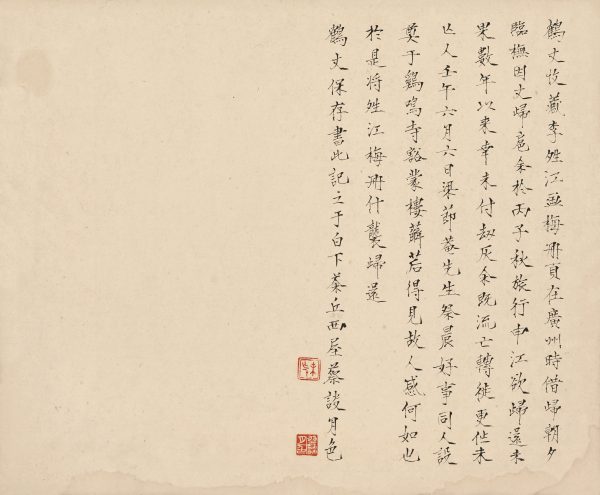 鶴丈收藏李夝江畫梅冊頁在廣州時借歸朝夕
臨橅因丈歸扈余於丙子秋旅行申江欲歸還未
果數年以來幸未付劫灰余既流亡轉徙更作未
亡人壬午六月六日梁節菴先生祭晨好事同人設
奠于鷄鳴寺豁蒙樓若得見故人感何如也
於是將夝江梅冊什襲歸還
鶴丈保存書此記之于白下丘西屋蔡談月色